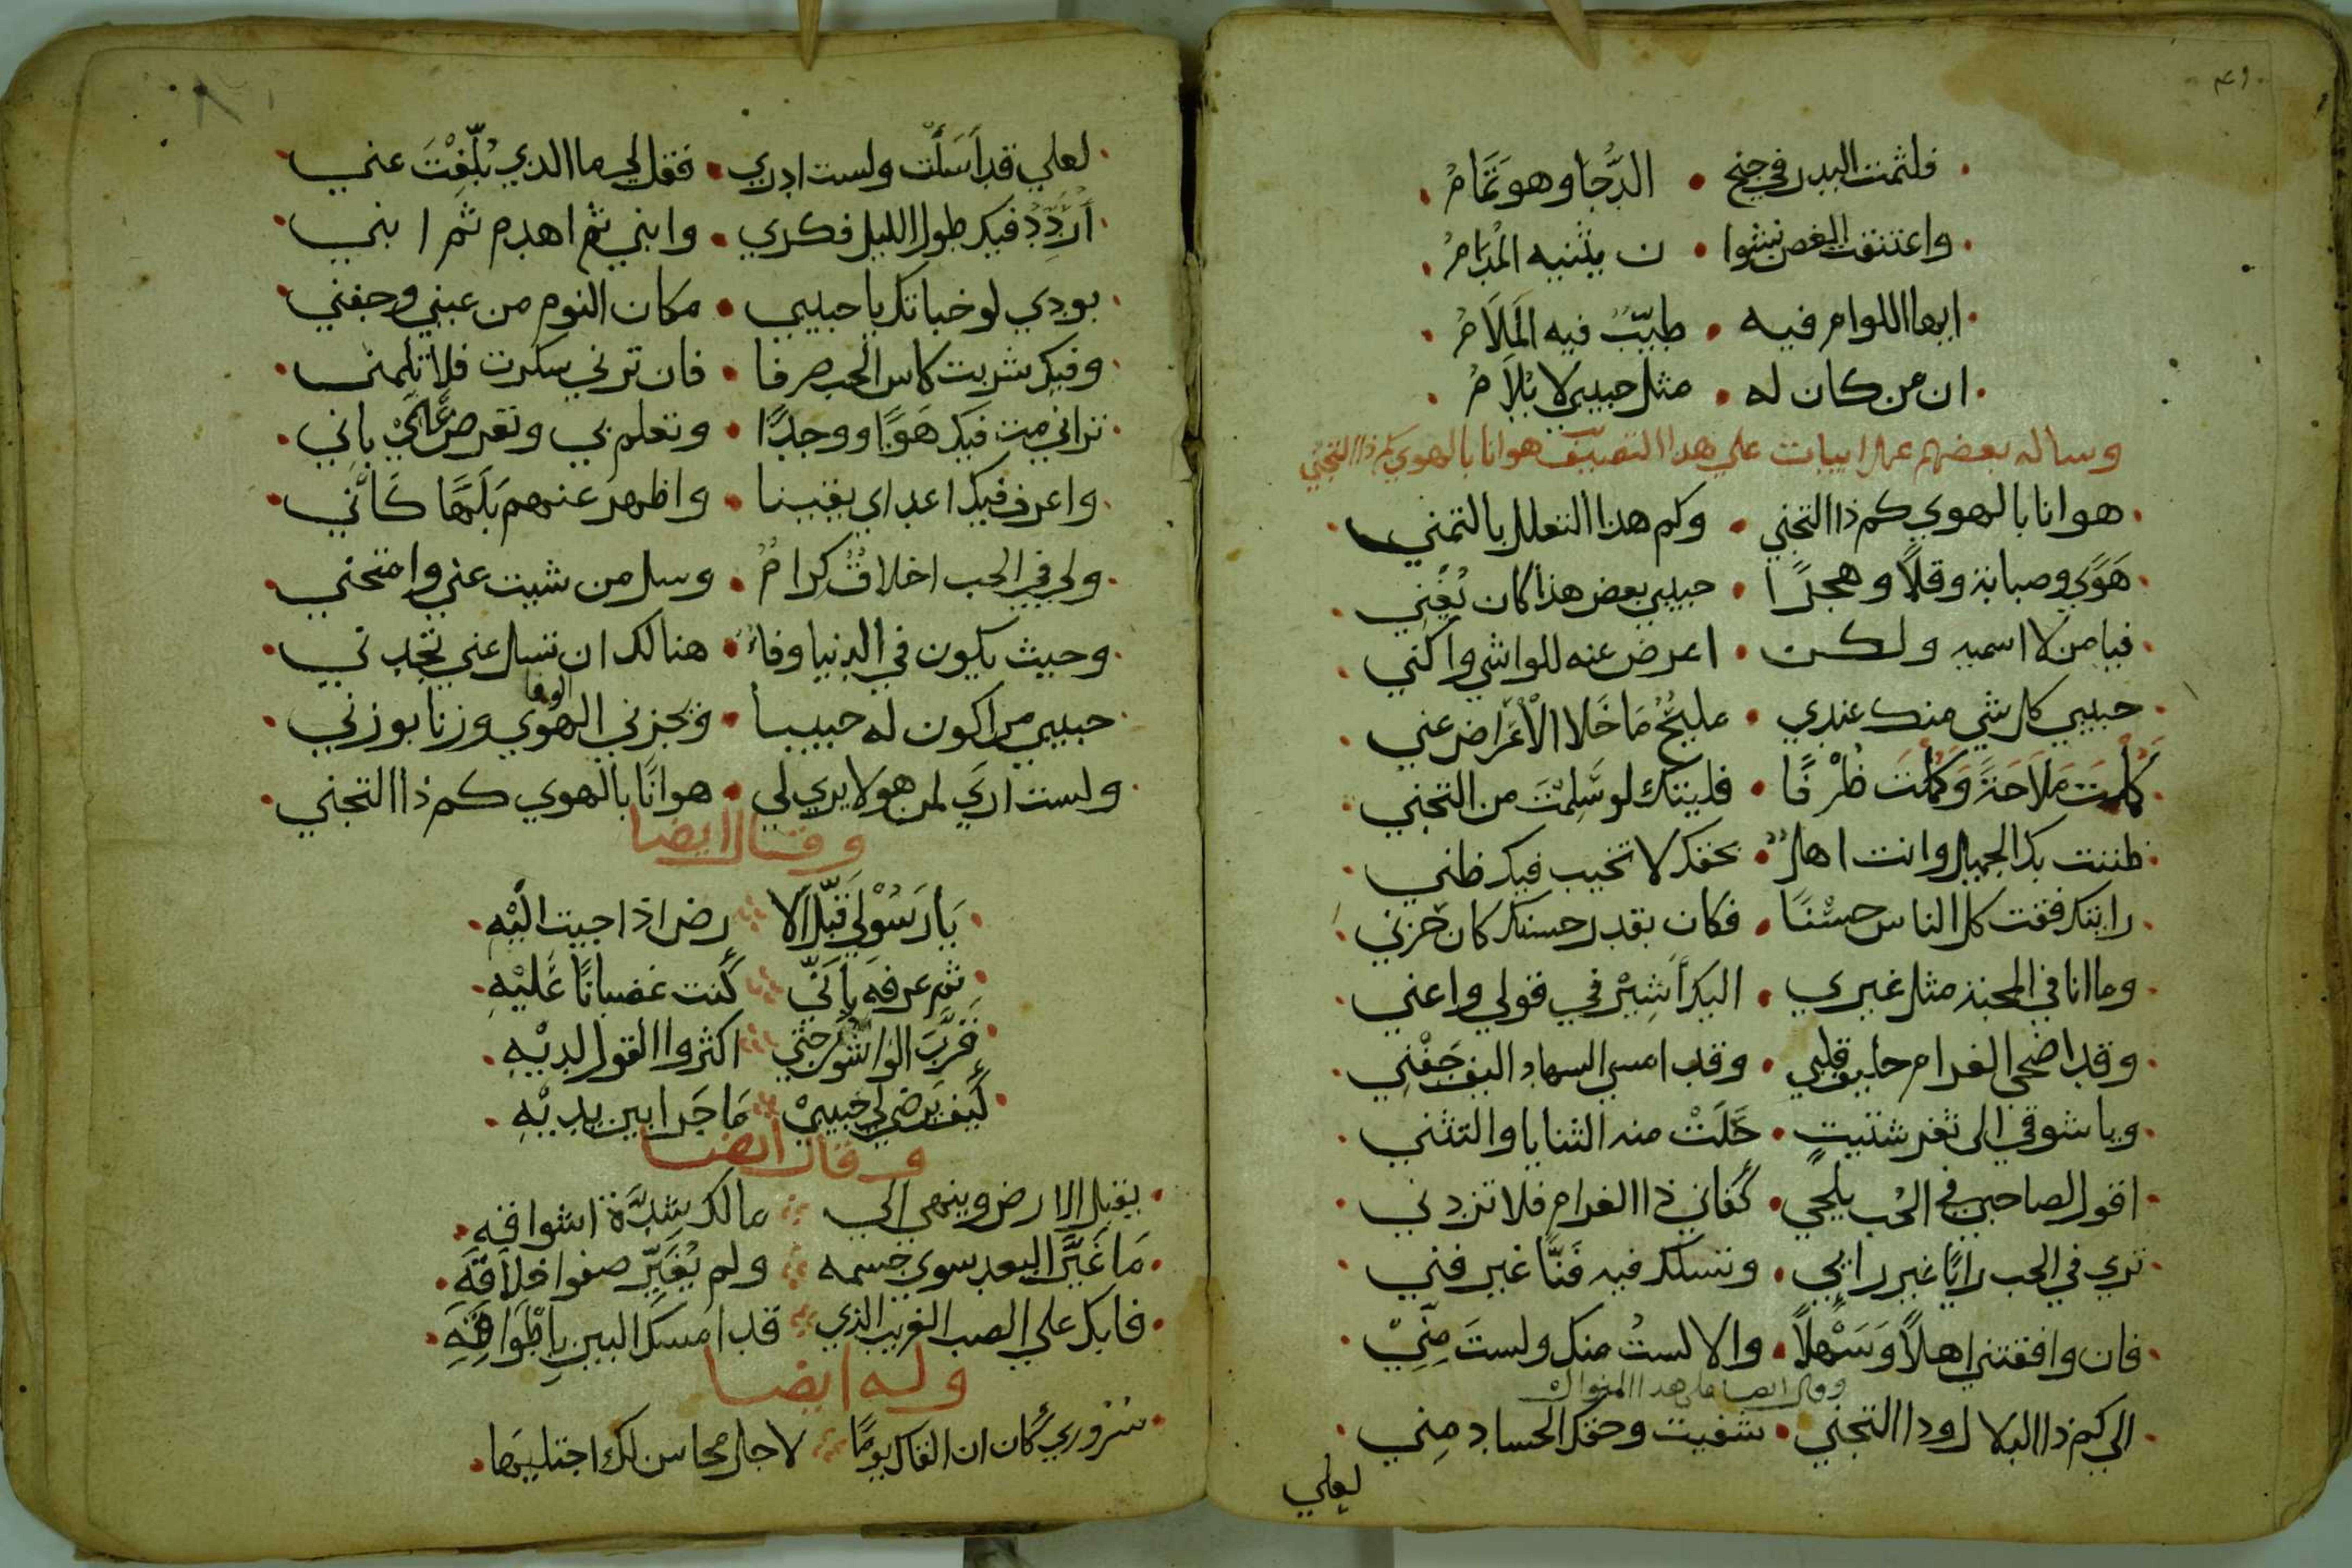 ٤١
فلثمت البدر في جنح • الدُّجَا وهو تَمَامُ
واعتنقت الغصن نشوا • ن يثنيه المُدَامُ
ايها اللوام فيه • طيّبٌ فيه المَلَامُ
ان من كان له • مثل حبيبي لا يُلَامُ
وساله بعضهم عمل ابيات على هدا هوانا بالهوي كم ذا التجني
هوانا بالهوي كم ذا التجني • وكم هذا التعلل بالتمني
هَوًي وصبابة وقلًا وهجرًا • حبيبي بعض هذا كان يُغْنِي
فيا من لا اسميه ولكن • اعرض عنه للواشي واكني
حبيبي كل شي منك عندي • مليحٌ مَا خَلا الْأعْرَاض عني
كَمُلْتَ مَلَاحَةً وَكَمُلْتَ ظُرْفًا • فليتك لو سَلِمْتَ من التجني
ظننت بك الجميل وانت اهلٌ • بحقك لا تخيب فيك ظني
رايتك فقت كل الناس حسْنًا • فكان بقدر حسنك كان حزني
وما انا في المحبة مثل غيري • اليك أشِيْر في قولي واعني
وقد اضحى الغرام حليف قلبي • وقد امسي السهاد اليف جَفْنِي
ويا شوقي الى ثغر شتيتٍ • حَلَتْ منه الثنايا والتثني
اقول لصاحبي في الحُب يلحي • كَفاني ذا الغرام فلا تزدني
تري في الحب رايًا غير رايي • وتسلك فيه فَنًّا غير فني
فان وافقتني اهلًا وَسَهْلًا • والا لستُ منك ولستَ مِنِّيْ
وقال ايضا على هدا المنوال
الي كم ذا البلا ل ودا التجني • شفيت وحقك الحساد مِني
لعلي
لعلي قد أسَأتَ ولست ادري • فقل لي ما الدي بُلِّغْتَ عني
أُرَدِّدُ فيك طول الليل فكري • وابني ثم اهدم ثم ابني
بودي لو خباتك يا حبيبي • مكان النوم من عيني وجفني
وفيك شربت كاس الحب صرفا • فان ترني سكرت فلا تلمني
تراني مت فيك هَوًا ووجدًا • وتعلم بي وتعرض عَليْ باني
واعرف فيك اعداي يقينا • واظهر عنهم بَلَهًا كَأَنَّني
ولي في الحب اخلاقٌ كرامٌ • وسل من شيت عني وامتحني
وحيث يكون في الدنيا وفاءٌ • هنالك ان تسال عني تجدني
حبيبي من اكون له حبيبا • ويجزني الهوي الوفا وزنا بوزني
ولست اريَ لمن هو لا يري لي • هوانًا بالهوي كم ذا التجني
وقال ايضا
يَا رَسُوْلي قَبّلِ الا رض اذا جيت اليْهِ
ثم عرفه بِأنّي كُنت غضبانًا عَليْهِ
قَرَّبَ الواشون حتي اكثروا القول لديْهِ
كَيف يَرضي لي حَبيبيْ مَا جَرا بين يديْهِ
وقال ايضا
يقبل الارض وينهي الي مالك شِدَّة اشواقه
مَا غَيَّرَ البعد سوي جسمه ولم يُغَيِّر صفو اخلاقَهِ
فابك علي الصب الغريب الذي قد امسك البين بِاطْوَاقِهِ
وله ايضا
سُرُوري كَان ان القاك يومًا لاجل محاسن لك اجتليها